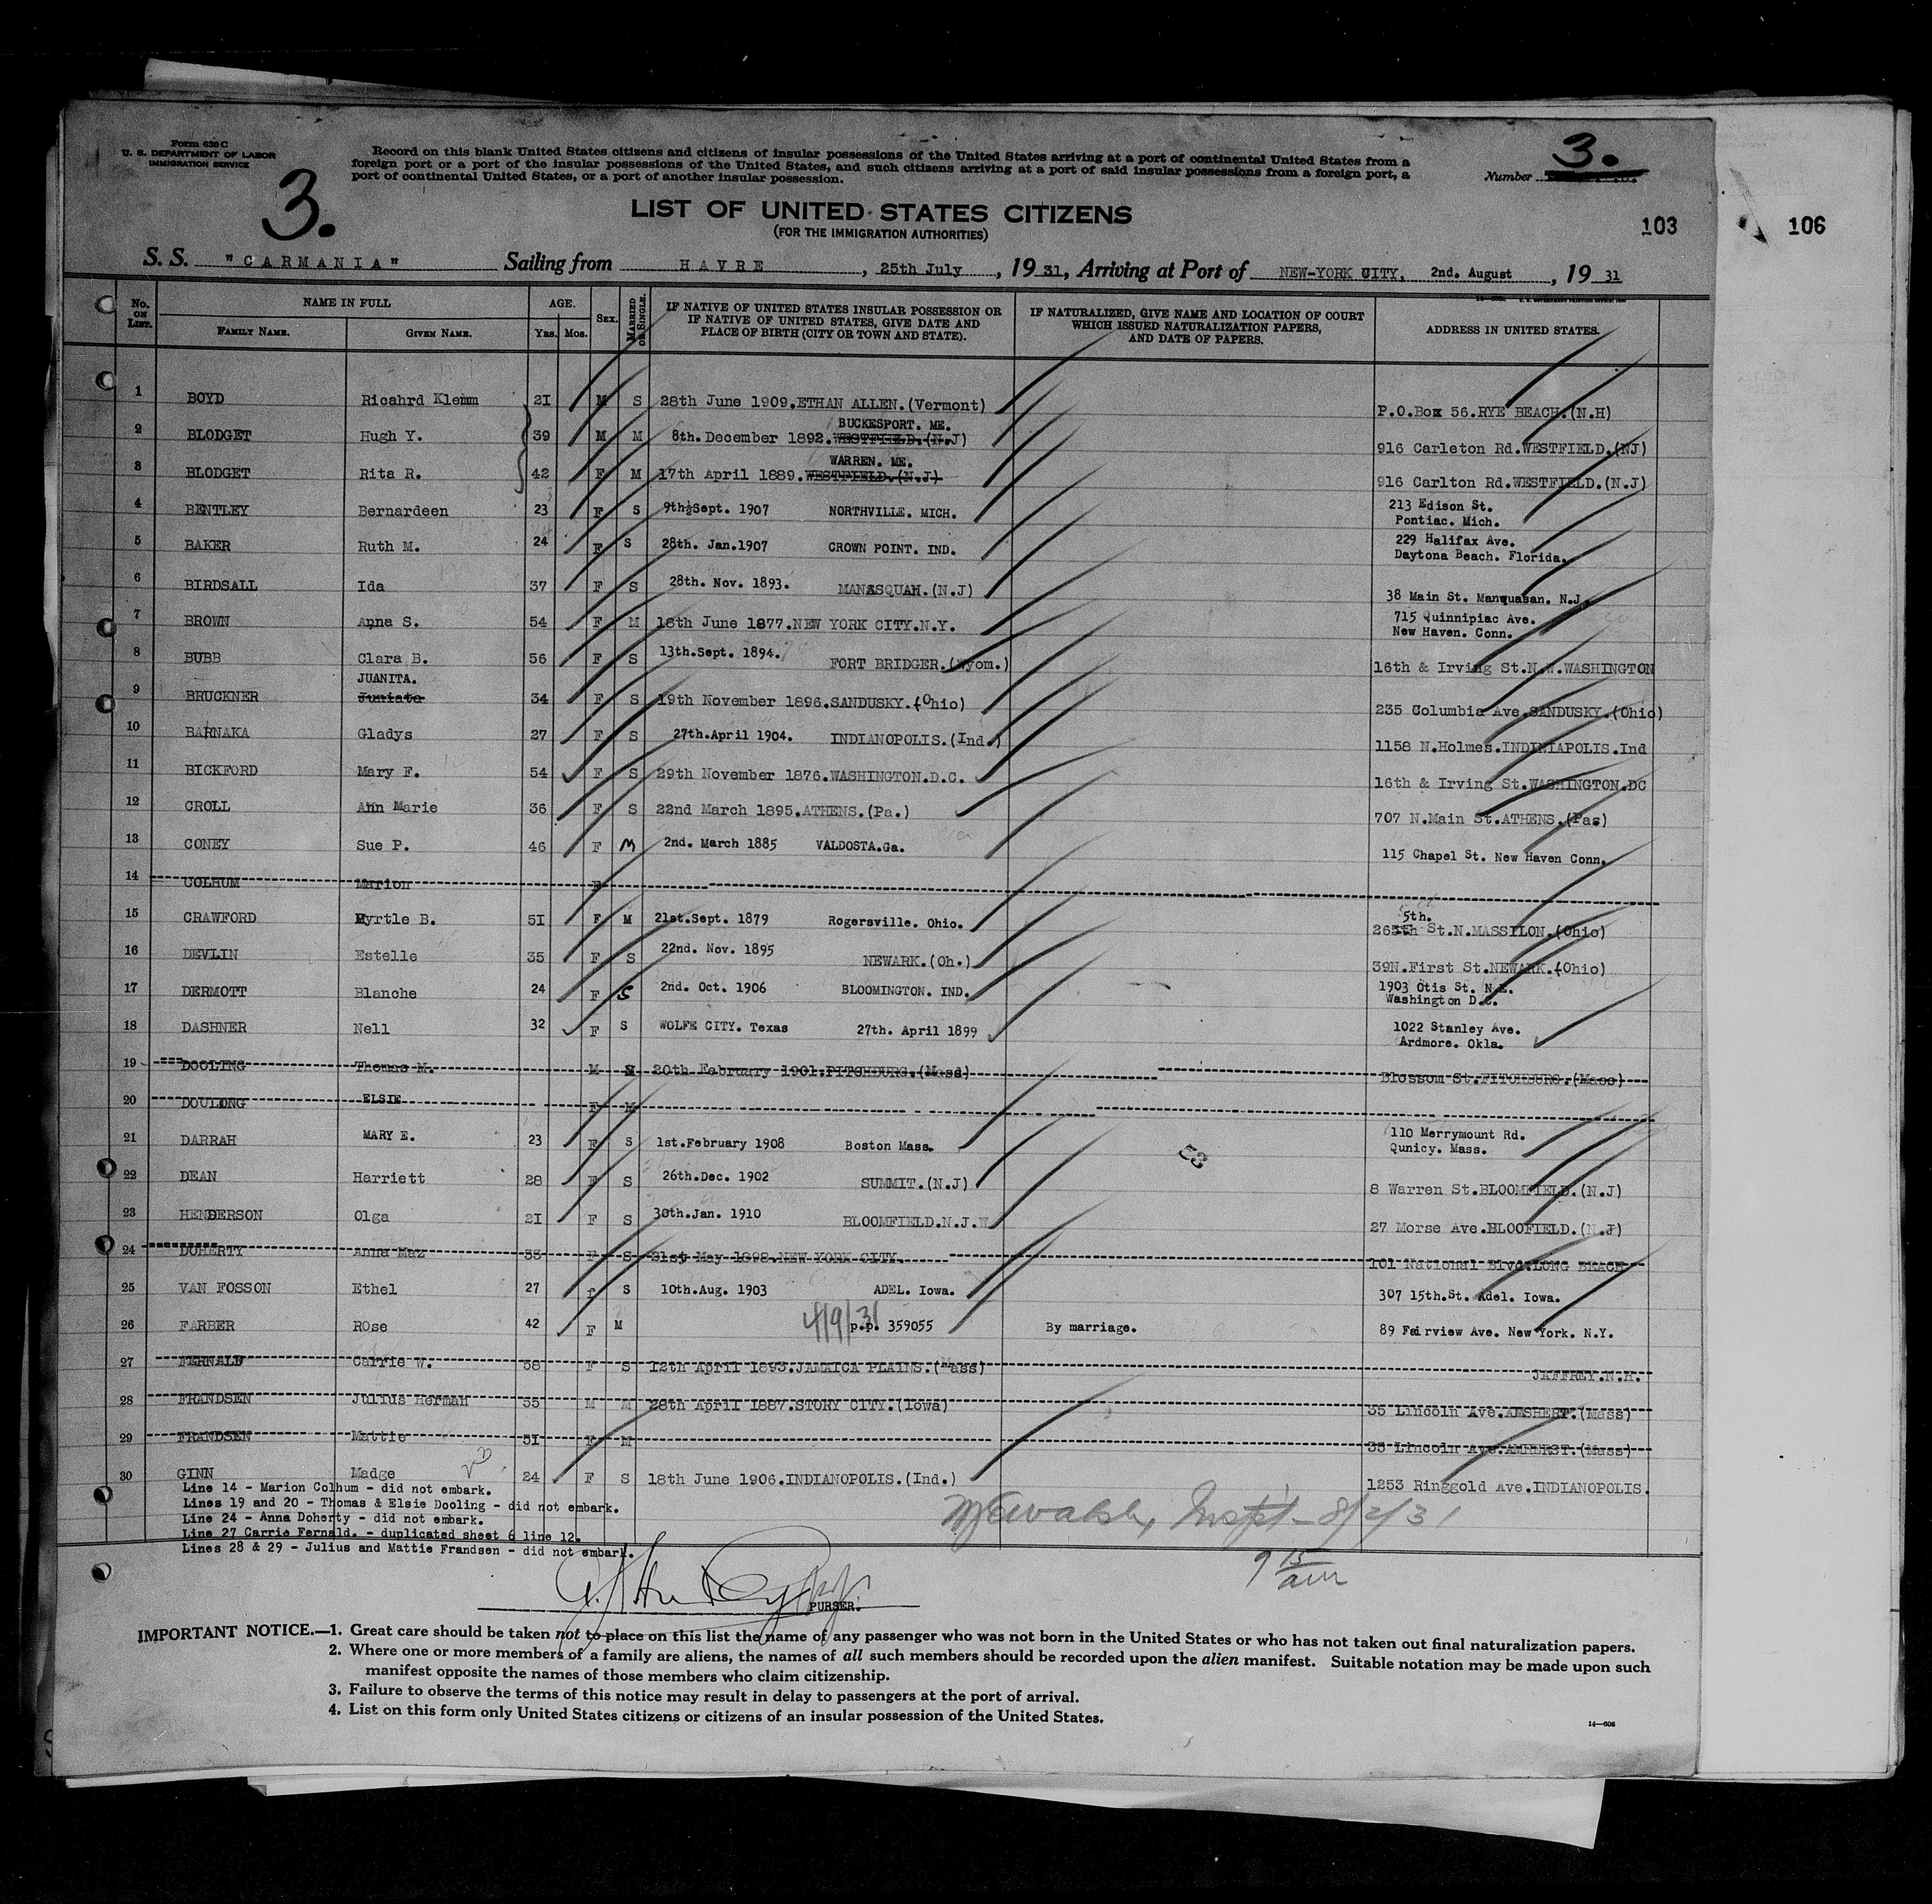 Form 630 C
U. S. DEPARTMENT OF LABOR
IMMIGRATION SERVICE
Record on this blank United States citizens and citizens of insular possessions of the United States arriving at a port of continental United States from a
foreign port or a port of the insular possessions of the United States, and such citizens arriving at a port of said insular possessions from a foreign port, a
port of continental United States, or a port of another insular possession.
3.
Number
3.
LIST OF UNITED STATES CITIZENS
(FOR THE IMMIGRATION AUTHORITIES)
103
106
S. S. "CARMANIA" Sailing from HAVRE, 25th July, 1931, Arriving at Port of NEW-YORK CITY, 2nd. August, 1931
No. ON LIST. NAME IN FULL AGE. SEX. MARRIED OR SINGLE. IF NATIVE OF UNITED STATES INSULAR POSSESSION OR IF NATIVE OF UNITED STATES, GIVE DATE AND PLACE OF BIRTH (CITY OR TOWN AND STATE). IF NATURALIZED, GIVE NAME AND LOCATION OF COURT WHICH ISSUED NATURALIZATION PAPERS, AND DATE OF PAPERS. ADDRESS IN UNITED STATES.
FAMILY NAME. GIVEN NAME. YRS. MOS.
1 BOYD Ricahrd Klemm 21 M S 28th June 1909.ETHAN ALLEN.(Vermont) P.O.Box 56.RYE BEACH.(N.H)
BUCKESPORT. ME.
2 BLODGET Hugh Y. 39 M M 8th.December 1892.WESTFIELD.(N.J) 916 Carleton Rd.WESTFIELD.(NJ)
WARREN. ME.
3 BLODGET Rita R. 42 F M 17th April 1889.WESTFIELD.(N.J) 916 Carlton Rd.WESTFIELD.(N.J)
4 BENTLEY Bernardeen 23 F S 9th Sept. 1907 NORTHVILLE. MICH. 213 Edison St.
Pontiac. Mich.
5 BAKER Ruth M. 24 F S 28th. Jan.1907 CROWN POINT. IND. 229 Halifax Ave.
Daytona Beach. Florida.
6 BIRDSALL Ida 37 F S 28th. Nov. 1893. MANASQUAH.(N.J) 38 Main St. Manquasan. N.J.
7 BROWN Anna S. 54 F M 18th June 1877.NEW YORK CITY.N.Y. 715 Quinnipiac Ave.
New Haven. Conn.
8 BUBB Clara B. 56 F S 13th.Sept. 1894. FORT BRIDGER.(Wyom.) 16th & Irving St.N.W.WASHINGTON
JUANITA.
9 BRUCKNER Juniata 34 F S 19th November 1896.SANDUSKY.(Ohio) 235 Columbia Ave.SANDUSKY.(Ohio)
10 BARNAKA Gladys 27 F S 27th.April 1904. INDIANOPOLIS.(Ind.) 1158 N.Holmes.INDINIAPOLIS.Ind
11 BICKFORD Mary F. 54 F S 29th November 1876.WASHINGTON.D.C. 16th & Irving St.WASHINGTON.DC
12 CROLL Ann Marie 36 F S 22nd March 1895.ATHENS.(Pa.) 707 N.Main St.ATHENS.(Pas)
13 CONEY Sue P. 46 F M 2nd. March 1885 VALDOSTA.Ga. 115 Chapel St. New Haven Conn.
14 COLHUM Marion F
15 CRAWFORD Myrtle B. 51 F M 21st.Sept. 1879 Rogersville. Ohio. 5th.
265th St.N.MASSILON.(Ohio)
16 DEVLIN Estelle 35 F S 22nd. Nov. 1895 NEWARK.(Oh.) 39N.First St.NEWARK.(Ohio)
17 DERMOTT Blanche 24 F S 2nd. Oct. 1906 BLOOMINGTON. IND. 1903 Otis St. N.E.
Washington D.C.
18 DASHNER Nell 32 F S WOLFE CITY. Texas 27th. April 1899 1022 Stanley Ave.
Ardmore. Okla.
19 DOOLING Thomas M. M 20th February 1901.FITCHBURG.(Mass) Blossom St.FITCHBURG.(Mass)
20 DOULONG ELSIE F M
21 DARRAH MARY E. 23 F S 1st.February 1908 Boston Mass. 110 Merrymount Rd.
Qunicy. Mass.
53
22 DEAN Harriett 28 F S 26th.Dec. 1902 SUMMIT.(N.J) 8 Warren St.BLOOMFIELD.(N.J)
23 HENDERSON Olga 21 F S 30th.Jan. 1910 BLOOMFIELD.N.J. 27 Morse Ave.BLOOFIELD.(N.J)
24 DOHERTY Anna Maz 33 F S 21st May 1898.NEW YORK CITY. 101 National Blvd.LONG BEACH
25 VAN FOSSON Ethel 27 F S 10th.Aug. 1903 ADEL. Iowa. 307 15th.St. Adel. Iowa.
26 FARBER ROse 42 F M 4/9/31 p.p. 359055 By marriage. 89 Fairview Ave. New York. N.Y.
27 FERNALD Carrie W. 38 F S 12th April 1893.JAMAICA PLAINS.(Mass) JAFFREY.N.H.
28 FRANDSEN Julius Herman 55 M M 28th April 1887.STORY CITY.(Iowa) 35 Lincoln Ave.AMSHERT.(Mass)
29 FRANDSEN Mattie 51 F M 35 Lincoln Ave.AMHERST.(Mass)
30 GINN Madge 24 F S 18th June 1906.INDIANOPOLIS.(Ind.) 1253 Ringgold Ave.INDIANOPOLIS.
Line 14 - Marion Colhum - did not embark.
Lines 19 and 20 - Thomas & Elsie Dooling - did not embark.
Line 24 - Anna Doherty - did not embark.
Line 27 Carrie Fernald. - duplicated sheet 6 line 12.
Lines 28 & 29 - Julius and Mattie Frandsen - did not embark.
Walsh, Inspt - 8/2/31
9 15 am
PURSER.
IMPORTANT NOTICE.—1. Great care should be taken not to place on this list the name of any passenger who was not born in the United States or who has not taken out final naturalization papers.
2. Where one or more members of a family are aliens, the names of all such members should be recorded upon the alien manifest. Suitable notation may be made upon such
manifest opposite the names of those members who claim citizenship.
3. Failure to observe the terms of this notice may result in delay to passengers at the port of arrival.
4. List on this form only United States citizens or citizens of an insular possession of the United States.
14—606